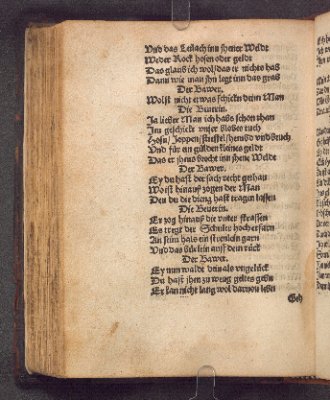 Vnd das Leilach inn ihener Weldt
Weder Rock hosen oder geldt
Das glaub ich wol/das er nichts hab
Dann wie man ihn legt inn das grab
Der Bawer.
Wolst nicht etwas schicken deim Man
Die Beurin.
Ja lieber Man ich habs schon than
Im geschickt vnser blabes tuch
Hosn/ Joppen/ stieffel/ hemd vnd bruch
Vnd für ein gülden kleines geldt
Das er ihms brecht inn ihene Weldt
Der Bawer.
Ey du hast der sach recht gethan
Wo ist hinauß zogen der Man
Den du die ding hast tragen lassen
Die Beuerin.
Er zog hinauß die vnter strassen
Es tregt der Schuler hocherfarn
An seim hals ein strenlein garn
Vnd das bürlein auff dem rück
Der Bawer.
Ey nun walde dein als vnglück
Du hast ihm zu wenig geltes geben
Er kan nicht lang wol daruon leben
Geh